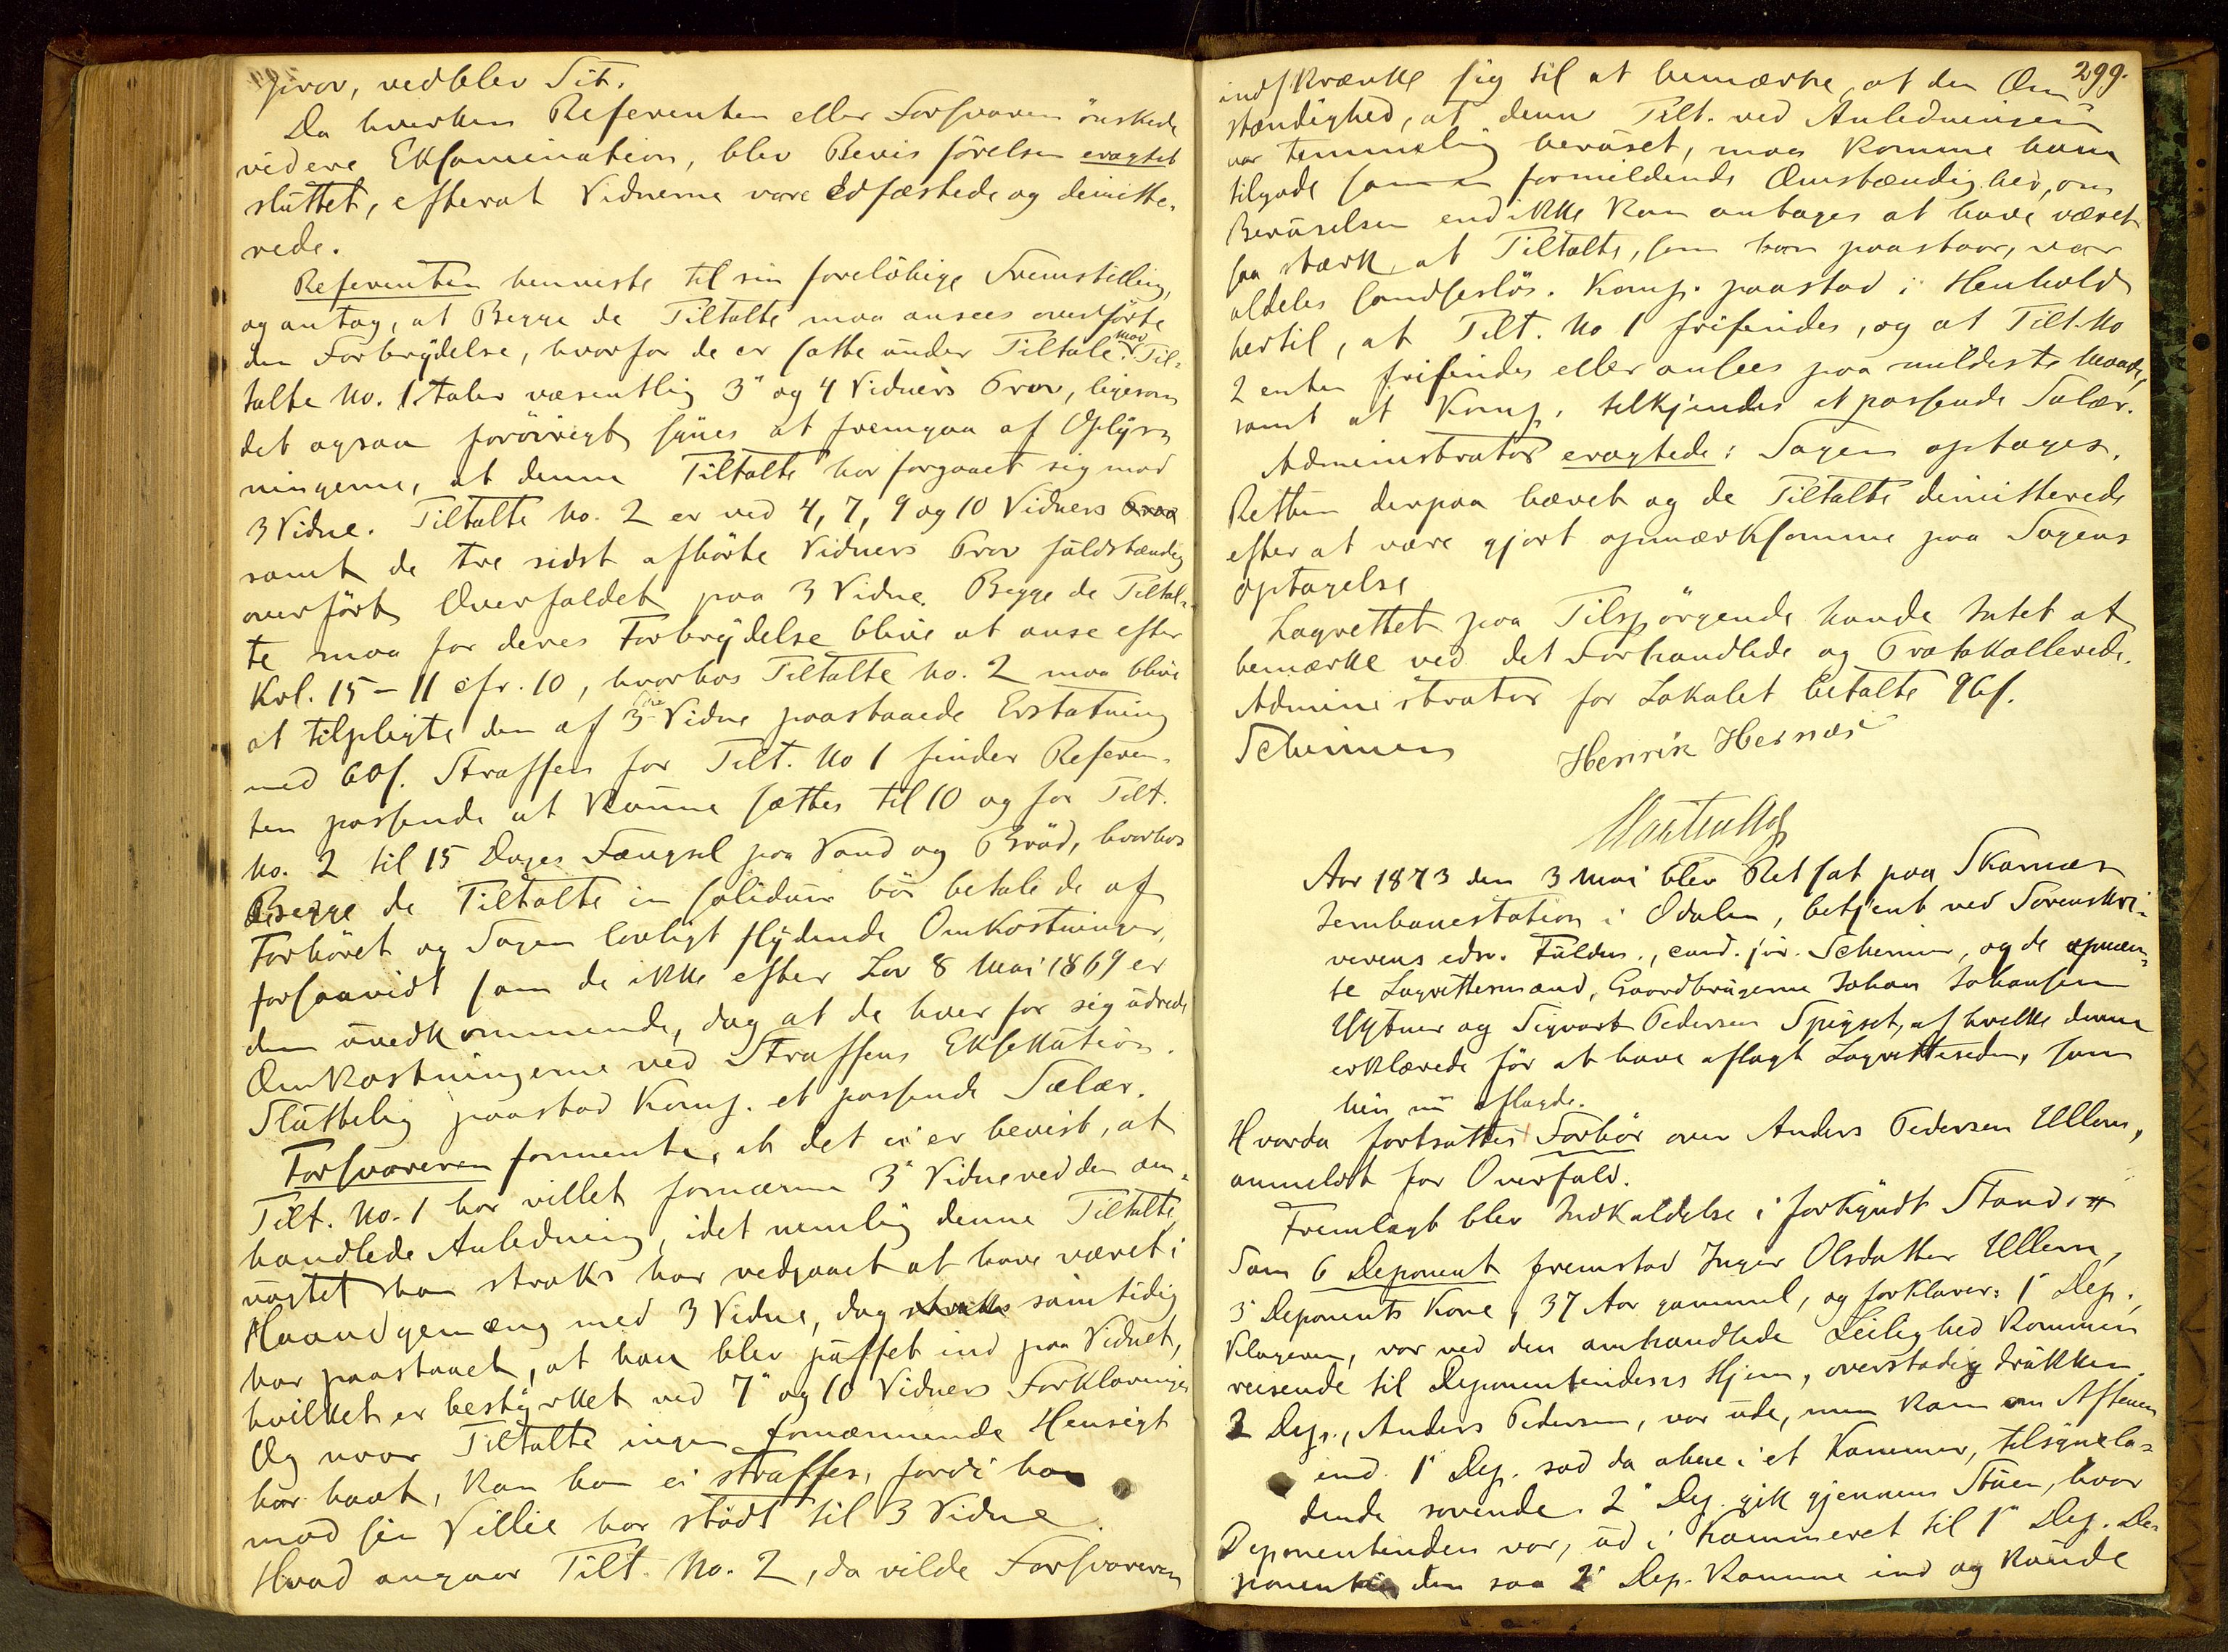 prov, vedblev Sit.
Da hverken Referenten eller Forsvaren önskede
videre Eksamination, blev Bevisförelsen eragtet
sluttet, efterat Vidnerne vare edfæstede og demitte-
rede.
Referenten henviste til sin foreløbige Fremstilling,
og antog, at Begge de Tiltalte maa ansees overförte
den Forbrydelse, hvorfor de er satte under Tiltale. mod Til-
talte No. 1 taler væsentlig 3" og 4 Vidners Prov, ligesom
det ogsaa forövrigt synes at fremgaa af Oplys-
ningerne, at denne Tiltalte har forgaaet sig mod
3 Vidne. Tiltalte No. 2 er ved 4, 7, 9 og 10 Vidners Prov
samt de tre sidst afhörte Vidners Prov fuldstændig
overfört Overfaldet paa 3 Vidne. Begge de Tiltal-
te maa for deres Forbrydelse blive at anse efter
Krl. 15 - 11 cfr. 10, hvorhos Tiltalte No. 2 maa blive
at tilpligte den af 3die Vidne paastaaede Erstatning
med 60s. Straffen for Tilt. No 1 finder Referen-
ten passende at kunne sættes til 10 og for Tilt.
No. 2 til 15 Dages Fængsel paa Vand og Bröd, hvorhos
Begge de Tiltalte in solidum bör betale de af
Forhöret og Sagen lovligt flydende Omkostninger,
forsaavidt som de ikke efter Lov 8 Mai 1869 er
dem uvedkommende, dog at de hver for sig udrede
Omkostningerne ved Straffens Eksekution.
Sluttelig paastod Komp. et passende Salær.
Forsvareren formente, at det ei er bevist, at
Tilt. No. 1 har villet fornærme 3" Vidne ved den om-
handlede Anledning, idet nemlig denne Tiltalte,
uagtet han straks har vedgaaet at have været i
Haandgemæng med 3 Vidne, dog straks samtidig
har paastaaet, at han blev puffet ind paa Vidnet,
hvilket er bestyrket ved 7" og 10 Vidners Forklaringer
Og naar Tiltalte ingen fornærmende Hensigt
har havt, kan han ei straffes, fordi han
mod sin Villie har stödt til 3 Vidne.
Hvad angaar Tilt. No. 2, da vilde Forsvareren
299.
indskrænke sig til at bemærke, at den Om-
stændighed, at denne Tilt. ved Anledningen
var temmelig beruset, maa komme ham
tilgode som en formildende Omstændighed, om
Beruselsen end ikke kan antages at have været
saa stærk, at Tiltalte, som han paastaar, var
aldeles sandsesløs. Komp. paastod i Henhold
hertil, at Tilt. No 1 frifindes, og at Tilt. No
2 enten frifindes eller ansees paa mildeste Maade,
samt at Komp. tilkjendes et passende Salær.
Administrator eragtede: Sagen optages.
Retten derpaa hævet og de Tiltalte demitterede
efter at være gjort opmærksomme paa Sagens
optagelse
Lagrettet paa Tilspörgende havde Intet at
bemærke ved det Forhandlede og Protokollerede.
Administrator for Lokalet betalte 96s.
Scheimer Henrik Hernæs
Aar 1873 den 3 Mai blev Ret sat paa Skarnæs
Jernbanestation i Odalen, betjent ved Sorenskri-
verens edsv. Fuldm., cand. jur. Scheimer, og de opnæv-
te Lagrettesmænd, Gaardbrugerne Johan Johansen
og Sigvart Pedersen Spigset, af hvilke denne
erklærede för at have aflagt Lagretteseden, som
hin nu aflagde.
Hvorda fortsattes Forhör over Anders Pedersen Ullern,
anmeldt for Overfald.
Fremlagt blev Indkaldelse i forkyndt Stand.
Som 6 Deponent fremstod Inger Olsdatter Ullern,
3" Deponents Kone, 37 Aar gammel, og forklarer: 1" Dep.,
Klageren, var ved den omhandlede Leilighed kommen
reisende til Deponentindens Hjem, overstadig drukken.
2 Dep., Anders Pedersen, var ude, men kom om Aftenen
ind. 1" Dep. sad da alene i et Kammer, tilsynela-
dende sovende. 2" Dep. gik gjennem Stuen, hvor
Deponentinden var, ud i Kammeret til 1" Dep. De-
ponentinden saa 2" Dep. komme ind og kunde